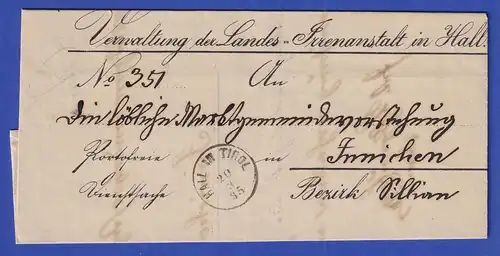 Verwaltung der Landes-Irrenanstalt in Hall.
No 351 An
Die löbliche Marktgemeindevorstehung
Portofreie in Innichen
Dienstsache Bezirk Sillian
HALL IN TIROL
29
85